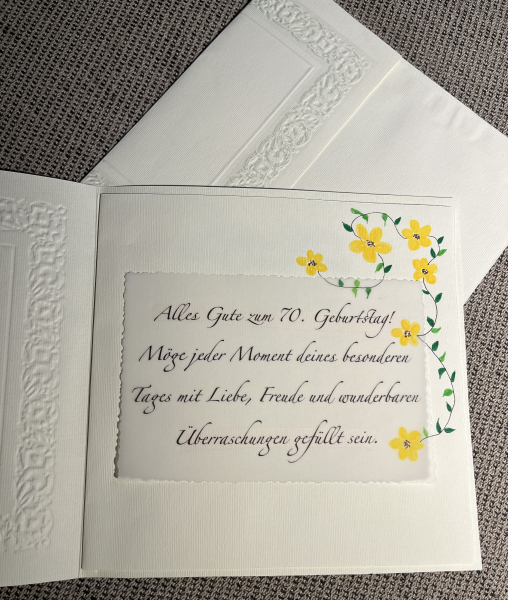 Alles Gute zum 70. Geburtstag!
Möge jeder Moment deines besonderen
Tages mit Liebe, Freude und wunderbaren
Überraschungen gefüllt sein.